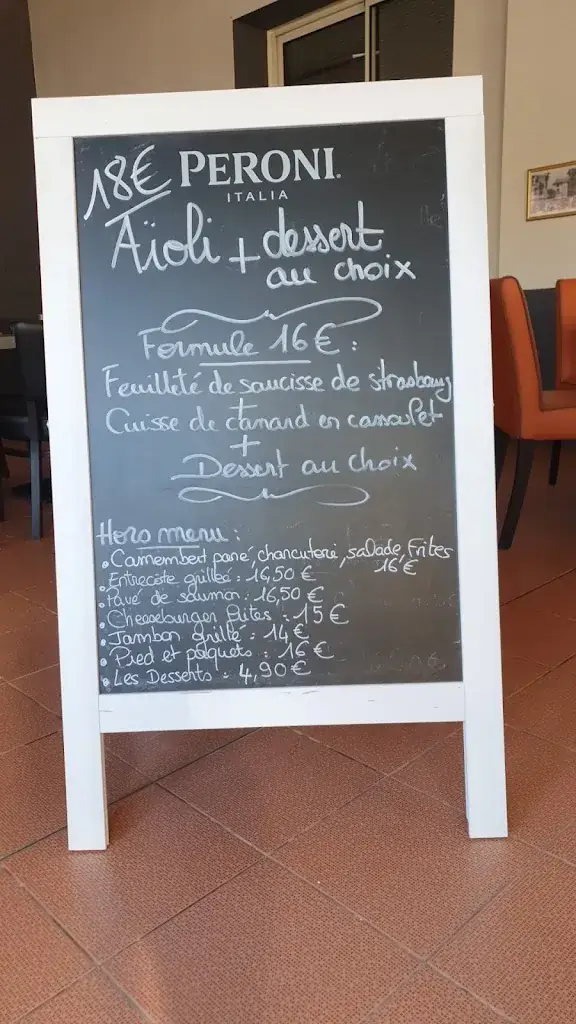 18€ PERONI
ITALIA
Aïoli + dessert
au choix
Formule 16€ :
Feuilleté de saucisse de strasbourg
+
Cuisse de canard en cassoulet
+
Dessert au choix
Hors menu :
• Camembert pané, charcuterie, salade, Frites
16€
• Entrecôte grillée : 16,50 €
• Pavé de saumon : 16,50 €
• Cheeseburger frites : 15 €
• Jambon grillé : 14 €
• Pied et paquets : 16 €
• Les Desserts : 4,90 €